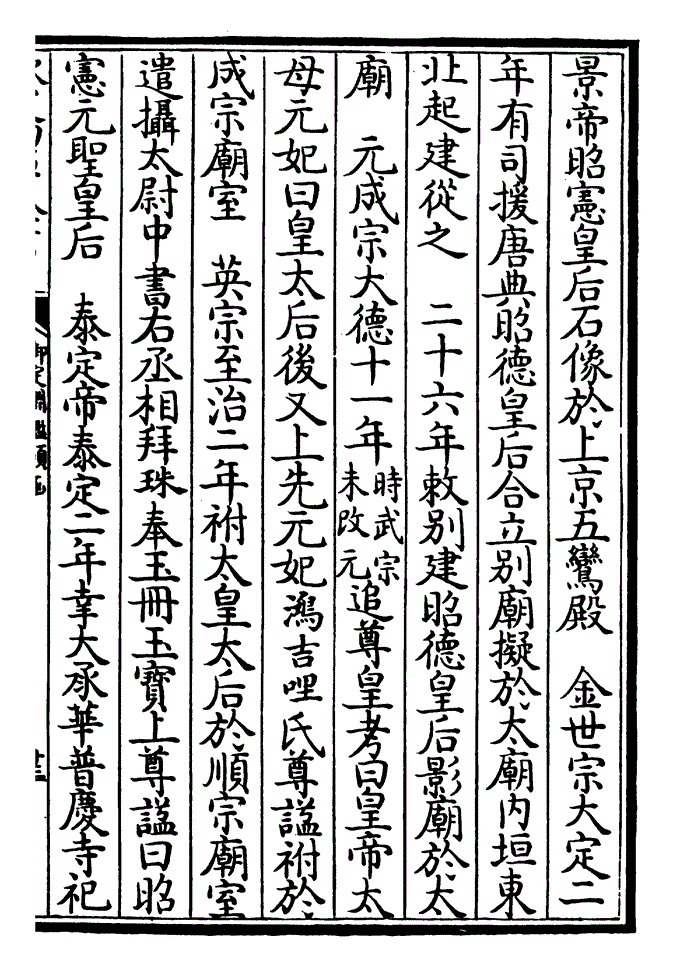 景帝昭憲皇后石像於上京五鸞殿　金世宗大定二
年有司援唐典昭德皇后合立别廟擬於太廟内垣東
北起建從之　二十六年敕别建昭德皇后影廟於太
廟　元成宗大德十一年時武宗未改元追尊皇考曰皇帝太
母元妃曰皇太后後又上先元妃鴻吉哩氏尊諡祔於
成宗廟室　英宗至治二年祔太皇太后於順宗廟室
遣攝太尉中書右丞相拜珠奉玉冊玉寶上尊諡曰昭
憲元聖皇后　泰定帝泰定二年幸大承華普慶寺祀
御定淵鑑類函